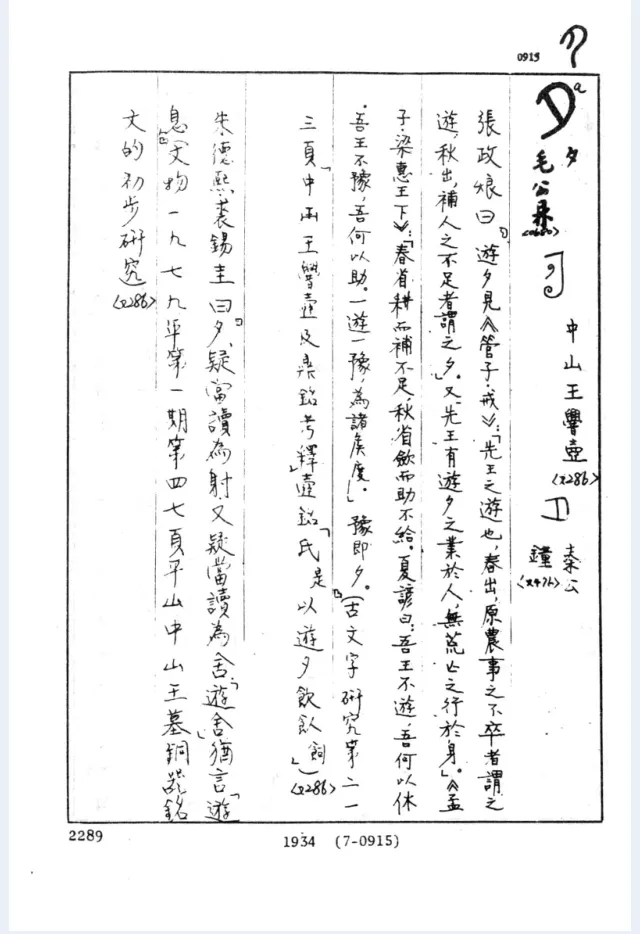 0915
夕
毛公鼎
中山王嚳壺
<x286>
秦公鐘
<x476>
張政烺曰『遊夕見《管子·戒》:「先王之遊也,春出,原農事之不卒者謂之
遊,秋出,補人之不足者謂之夕。」又「先王有遊夕之業於人,無荒亡之行於身。」《孟
子·梁惠王下》:「春省耕而補不足,秋省斂而助不給。夏諺曰:吾王不遊,吾何以休
。吾王不豫,吾何以助。一遊一豫,為諸侯度」。豫即夕。』(古文字研究第二一
三頁「中山王嚳壺及鼎銘考釋」壺銘「氏是以遊夕飲飤」)<x286>
朱德熙裘錫圭曰『夕,疑當讀為射又疑當讀為舍,「遊舍」猶言「遊
息」(文物一九七九年第一期第四七頁平山中山王墓銅器銘
文的初步研究<x286>
2289
1934 (7-0915)